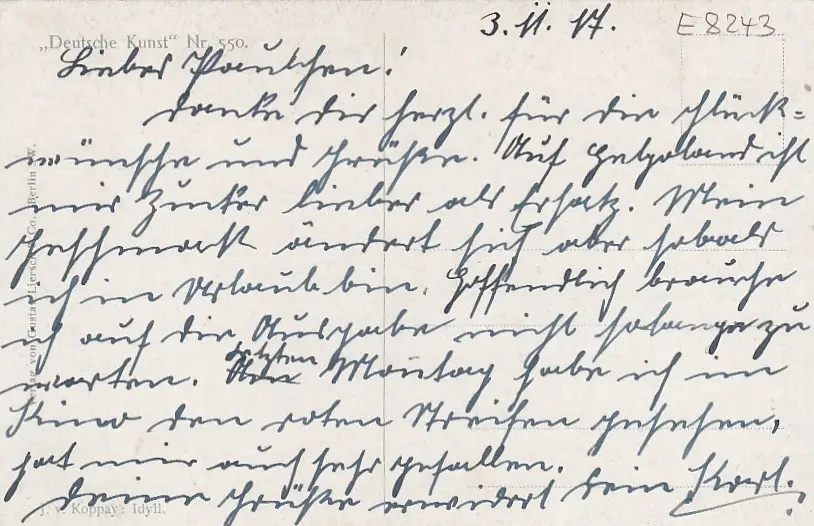 3. 11. 17.
E 8243
„Deutsche Kunst“ Nr. 550.
Liebes Paulchen!
Danke Dir herzl. für die Glück=
wünsche und Grüße. Auf Helgoland ist
mir Zucker lieber als Ersatz. Mein
Geschmack ändert sich aber sobald
ich in Urlaub bin. Hoffendlich brauche
ich auf die Ausgabe nicht solange zu
warten. Letzten Montag habe ich im
Kino den roten Streifen gesehen,
hat mir auch sehr gefallen.
Deine Grüße erwidert Dein Karl.
J. v. Koppay: Idyll.
Verlag von Gustav Liersch & Co., Berlin W.